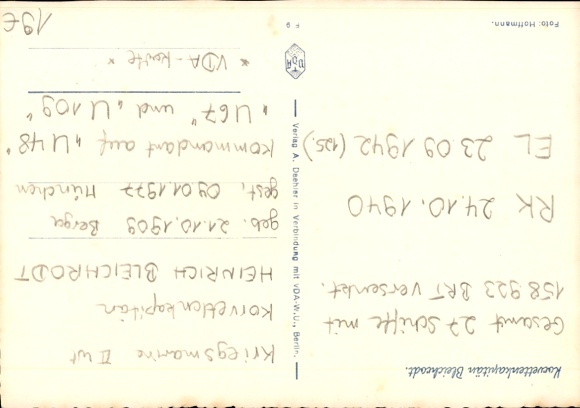 Korvettenkapitän Bleichrodt.
Kriegsmarine II WK
Korvettenkapitän
HEINRICH BLEICHRODT
geb. 21.10.1909 Berga
gest. 09.01.1977 München
Kommandant auf "U 48"
"U 67" und "U 109"
* VDA-Karte *
19€
Gesamt 27 Schiffe mit
158 923 BRT versenkt.
RK 24.10.1940
EL 23 09 1942 (125.)
Verlag A. Daehler in Verbindung mit VDA-W.U., Berlin.
VDA
F 9
Foto: Hoffmann.